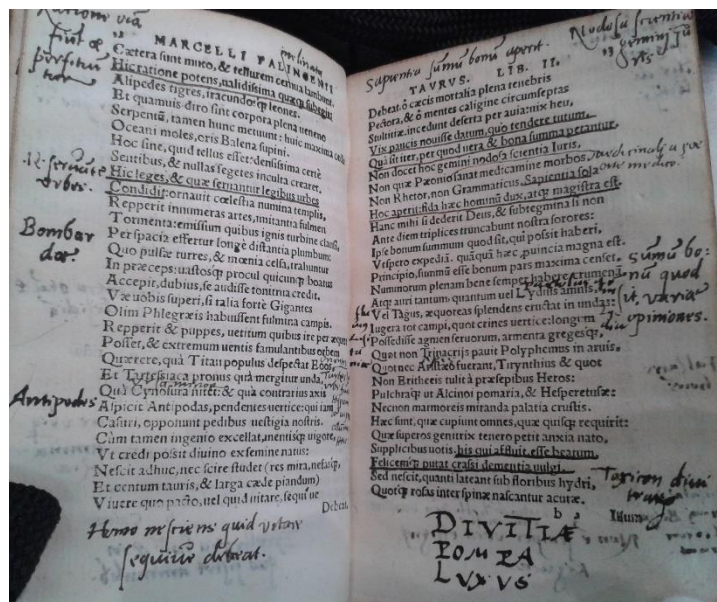 MARCELLI PALINGENII
Cætera sunt muto, & tellurem cernua lambunt.
Hic ratione potens, ualidissima quæq; subegit
Alipedes tigres, iracundosq; leones.
Et quamuis diro sint corpora plena ueneno
Serpentũ, tamen hunc metuunt: huic maxima
Oceani moles, oris Balena supini.
Hoc sine, quid tellus esset: densissima certè
Sentibus, & nullas segetes inculta crearet.
Hic leges, & quæ seruantur legibus urbes
Condidit: ornauit cœlestia numina templis,
Repperit innumeras artes, imitantia fulmen
Tormenta: emissum quibus ignis turbine clausi,
Per spacia effertur longè distantia plumbum:
Quo pulsæ turres, & mœnia celsa, trahuntur
In præceps: uastosq; procul quicunq; boatus
Accepit, dubius, se audisse tonitrua credit.
Væ uobis superi, si talia fortè Gigantes
Olim Phlegræis habuissent fulmina campis.
Repperit & puppes, uetitum quibus ire per æquor
Posset, & extremum uentis famulantibus orbem
Quærere, quà Titan populus despectat Eoos,
Et Tartessiaca pronus quà mergitur unda,
Quà Cynosura nitet: & quà contrarius axis
Aspicit Antipodas, pendenes uertice: qui iam
Castri, opponunt pedibus uestigia nostris.
Cùm tamen ingenio excellat, mentisq; uigore,
Vt credi possit diuino ex semine natus:
Nescit adhuc, nec scire studet (res mira, nefasq;,
Et centum tauris, & larga cæde piandum)
Viuere quo pacto, uel quid uitare, sequi ue
Debeat.
Bombar
dæ.
Antipodes
Homo nesciens quid vitare
sequive debeat.
Sapientia sũmũ bonũ aperit.
TAVRVS. LIB. II.
Debeat. ô cæcis mortalia plena tenebris
Pectora, & ô mentes caligine circumseptas
Stultitiæ: incedunt deserta per auia: uix heu,
Vix paucis nouisse datum, quo tendere tutum,
Quà sit iter, per quod uera & bona summa petantur.
Non docet hoc gemini nodosa scientia Iuris,
Non quæ Pæonio sanat medicamine morbos,
Non Rhetor, non Grammaticus, Sapientia sola
Hoc aperit: fida hæc hominũ dux, atq; magistra est.
Hanc mihi si dederit Deus, & subtegmina si non
Ante diem triplices truncabunt nostra sorores:
Ipse bonum summum quod sit, qui possit haberi,
Vtspero expediã. quãquã hæc ꝓuincia magna est.
Principio, summũ esse bonum pars maxima censet,
Nummorum plenam bene semper habere crumenã
Atq; auri tantum: quantum uel Lydius amnis,
Vel Tagus, æquoreas splendens eructat in undas:
Iugera tot campi, quot crines uertice: longum
Possedisse agmen seruorum, armenta gregesq;,
Quot non Trinacrijs pauit Polyphemus in aruis.
Quot nec fuerant, Tirynthius & quot
Non Eritheis tulit à præsepibus Heros:
Pulchraq; ut Alcinoi pomaria, & Hesperetusæ:
Necnon marmoreis miranda palatia crustis.
Hæc sunt, quæ cupiunt omnes, quæ quisq; requirit:
Quæ superos genitrix tenero petit anxia nato,
Supplicibus uotis. his qui afluit, esse beatum,
Felicemq; putat crassi dementia uulgi.
Sed nescit, quanti lateant sub floribus hydri,
Quotq; rosas inter spinæ nascantur acutæ.
b
Sũmũ bo:
nũ quod
sit, varia
opiniones.
DIVITIÆ
POMPA
LVXVS